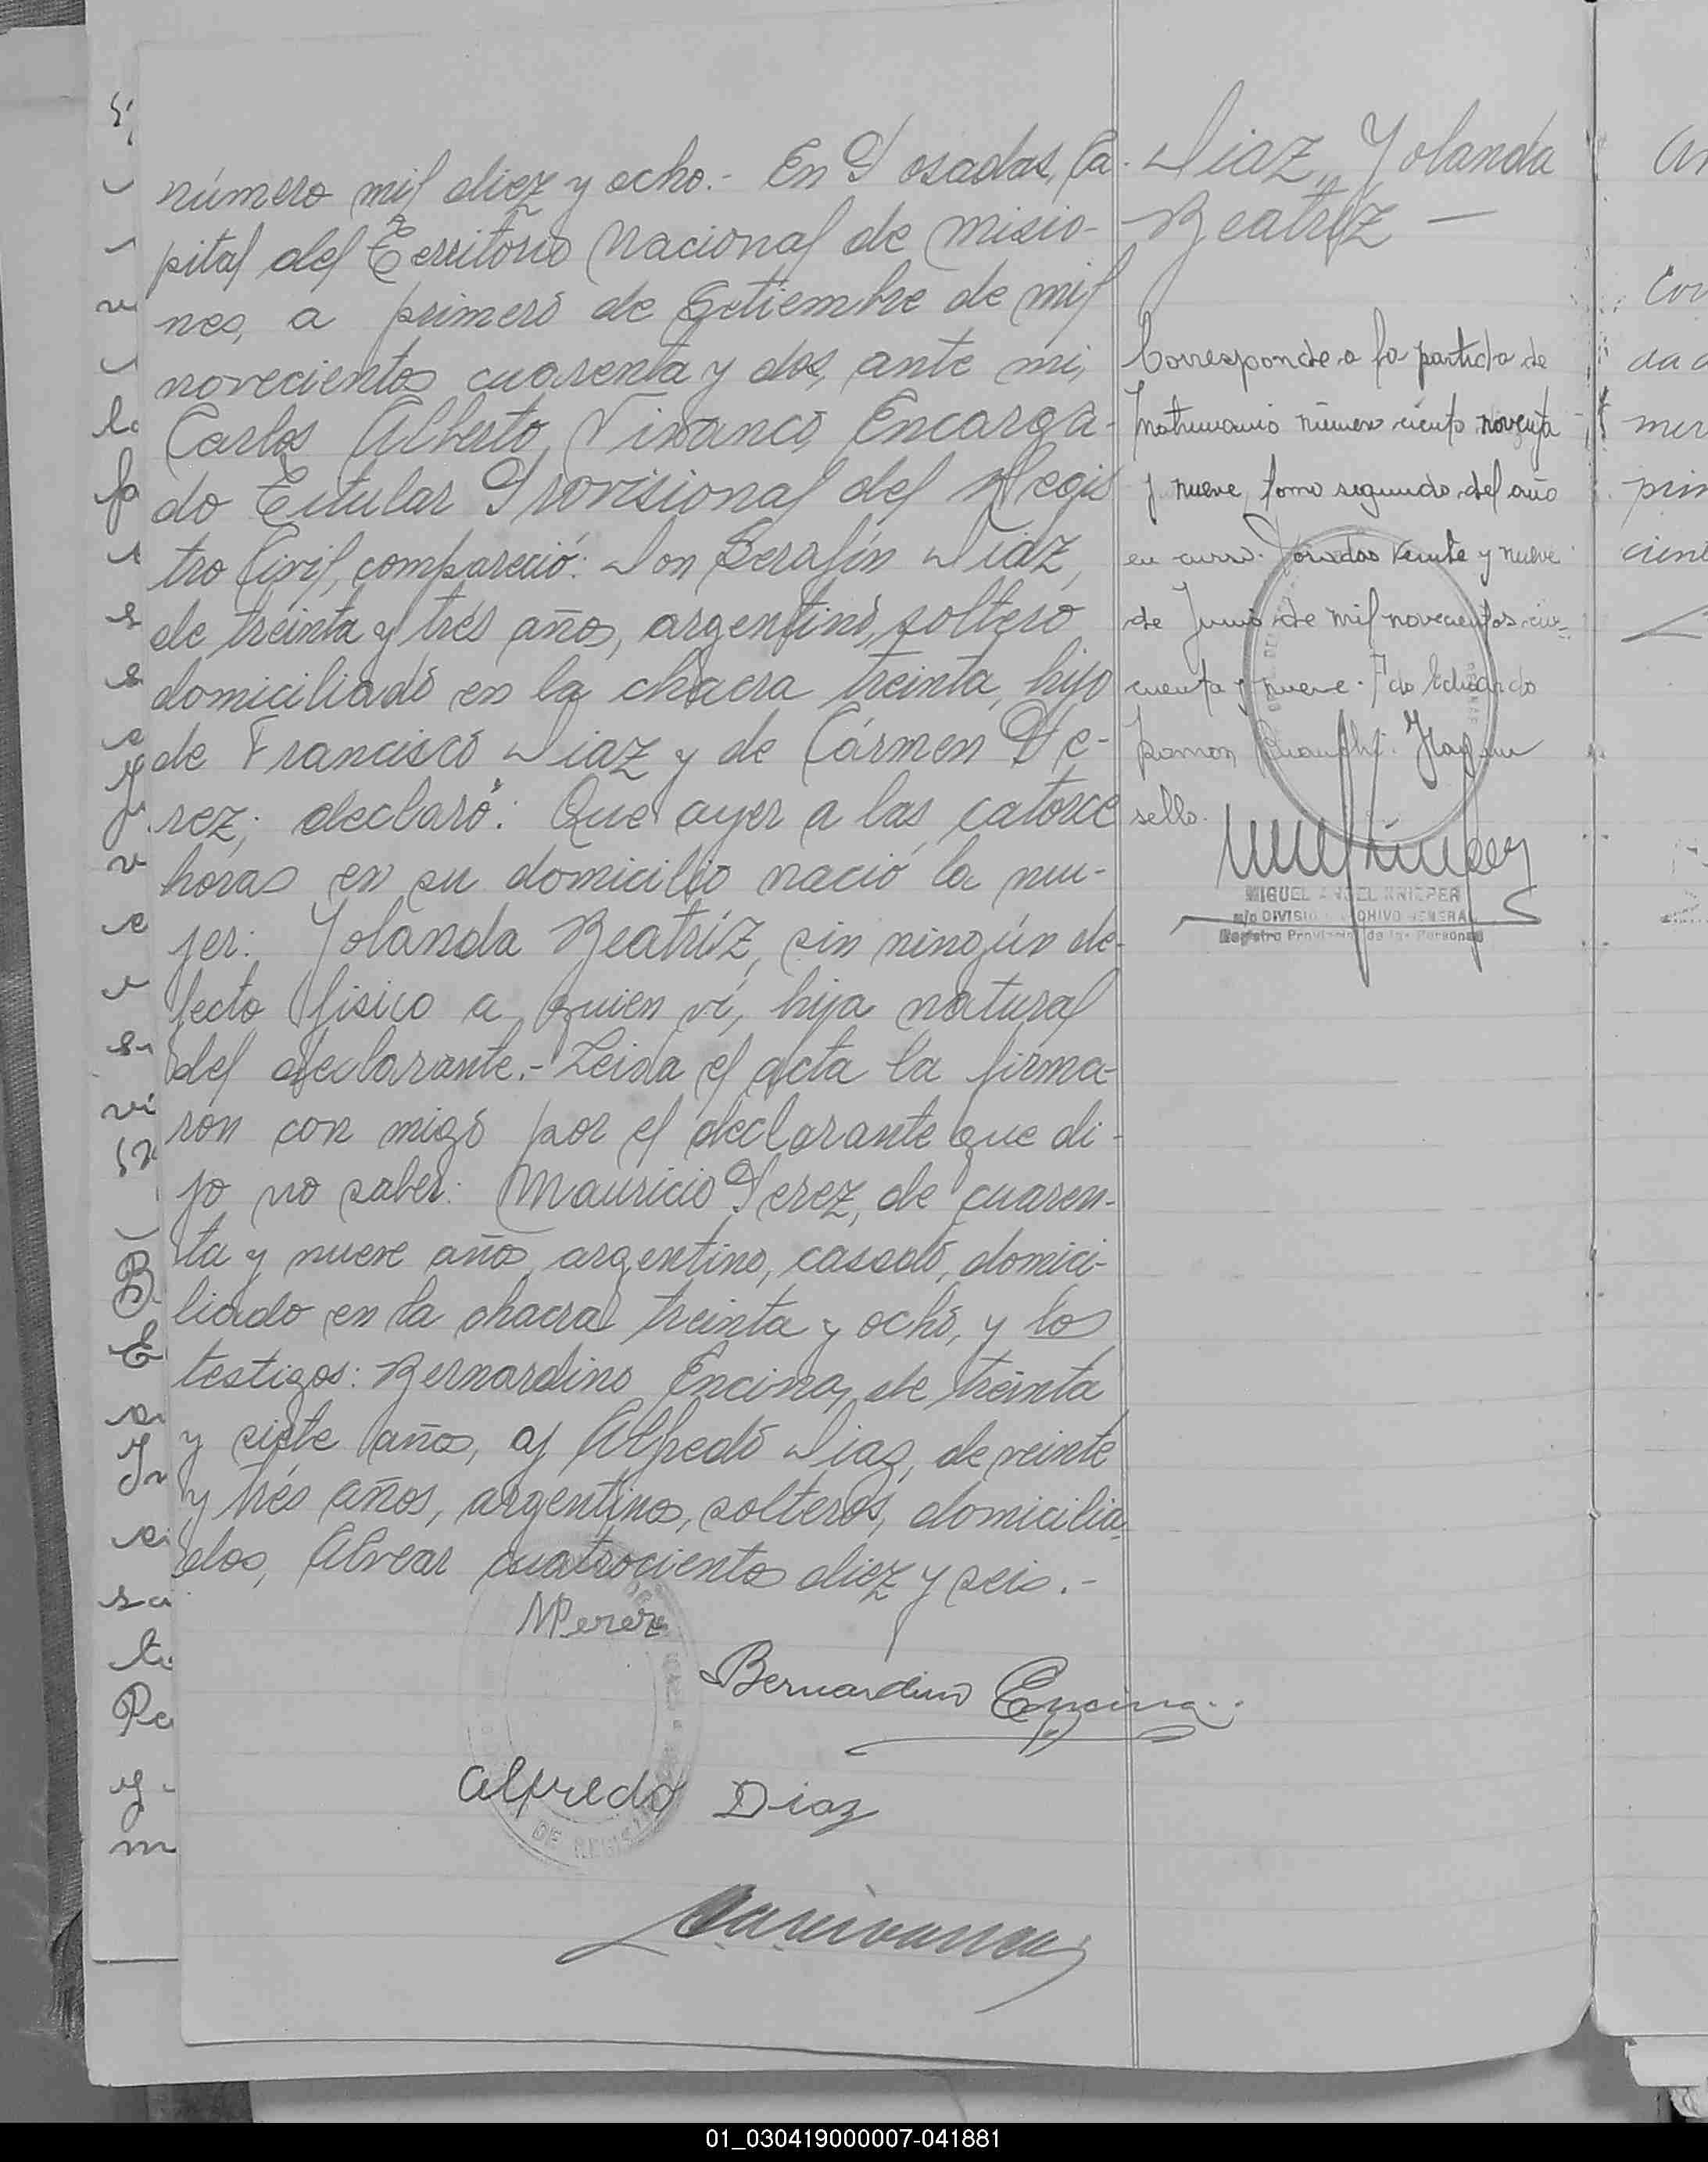 número mil diez y ocho.- En Posadas, Ca-
pital del Territorio Nacional de Misio-
nes, a primero de Setiembre de mil
novecientos cuarenta y dos, ante mi,
Carlos Alberto Vivanco, Encarga-
do Titular Provisional del Regis
tro Civil, compareció: Don Serafín Diaz,
de treinta y trés años, argentino, soltero
domiciliado en la chacra treinta, hijo
de Francisco Diaz y de Cármen Pe-
rez; declaró: Que ayer a las catorce
horas en su domicilio nació la mu-
jer: Yolanda Beatríz, sin ningún de-
fecto fisico a quien ví, hija natural
del declarante.- Leida el acta la firma-
ron con migo por el declarante que di-
jo no saber: Mauricio Perez, de cuaren-
ta y nueve años argentino, casado, domici-
liado en la chacra treinta y ocho, y los
testigos: Bernardino Encina, de treinta
y siete años, y Alfredo Diaz, de veinte
y trés años, argentinos, solteros, domicilia
dos, Alvear cuatrocientos diez y seis.-
MPerez
Bernardino Encina
Alfredo Diaz
DE REGIST
Diaz, Yolanda
Beatríz —
Corresponde a la partida de
Matrimonio número ciento noventa
y nueve, tomo segundo, del año
en curso. Posadas veinte y nueve
de Junio de mil novecientos cin-
cuenta y nueve. Fdo Eduardo
Ramon Hay un
sello.
MIGUEL ANGEL KNIEPER
a/c DIVISION ARCHIVO GENERAL
Registro Provincial de las Personas
01_030419000007-041881